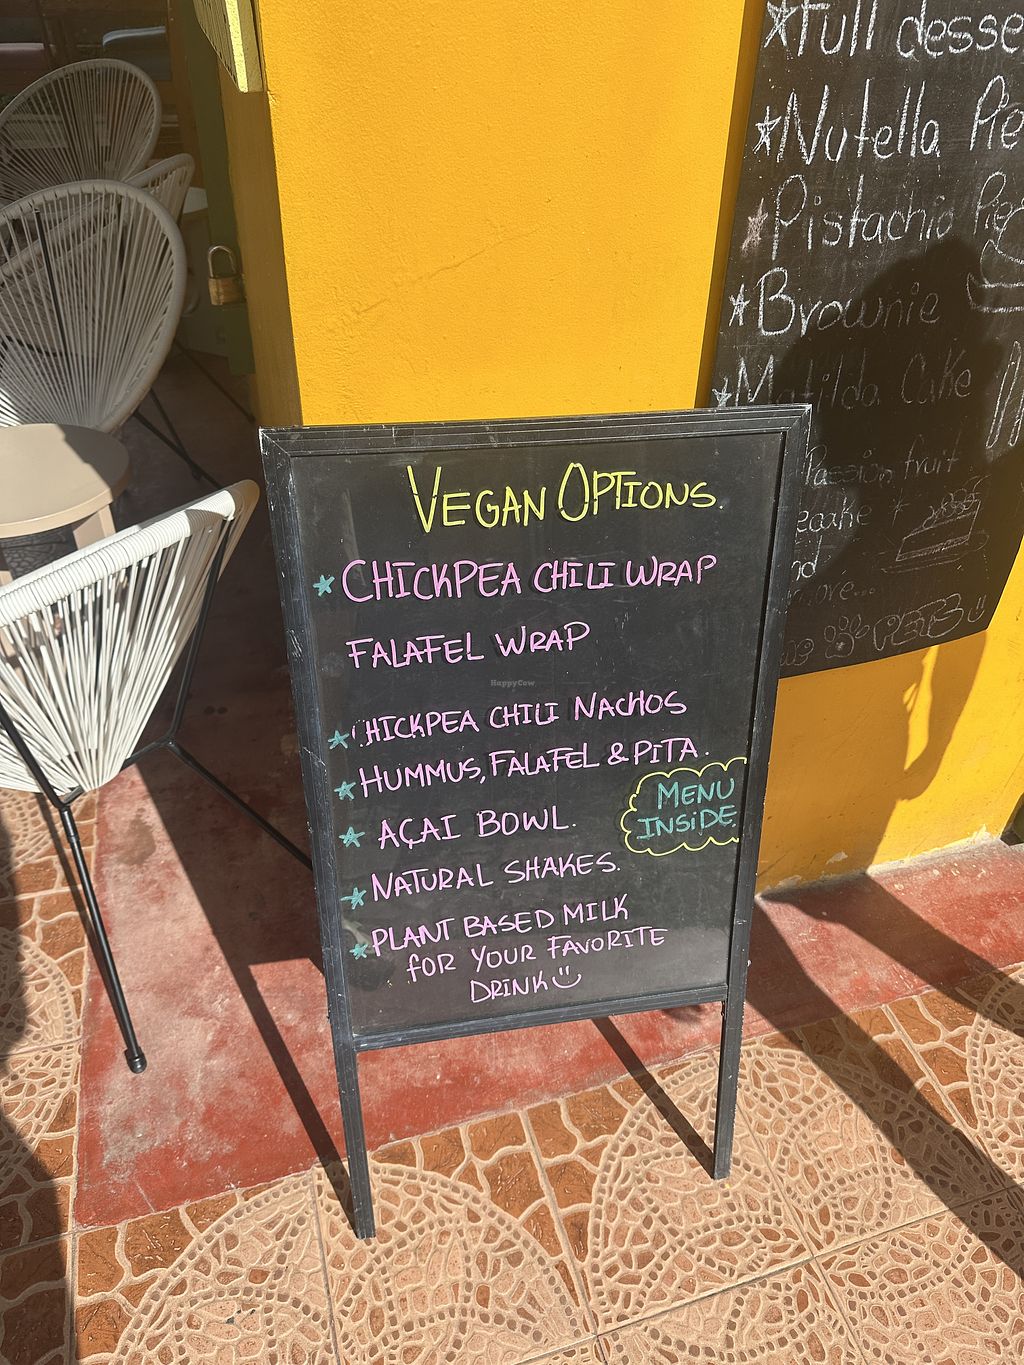 Vegan Options.
* CHICKPEA CHILI WRAP
FALAFEL WRAP
* HICKPEA CHILI NACHOS
* HUMMUS, FALAFEL & PITA.
* AÇAI BOWL.
MENU
INSIDE.
* NATURAL SHAKES.
* PLANT BASED MILK
FOR YOUR FAVORITE
DRINK
HappyCow
*Full desse
*Nutella Pie
*Pistachio Pie
*Brownie
*Matilda Cake
Passion fruit
+
nd
more...
PETS